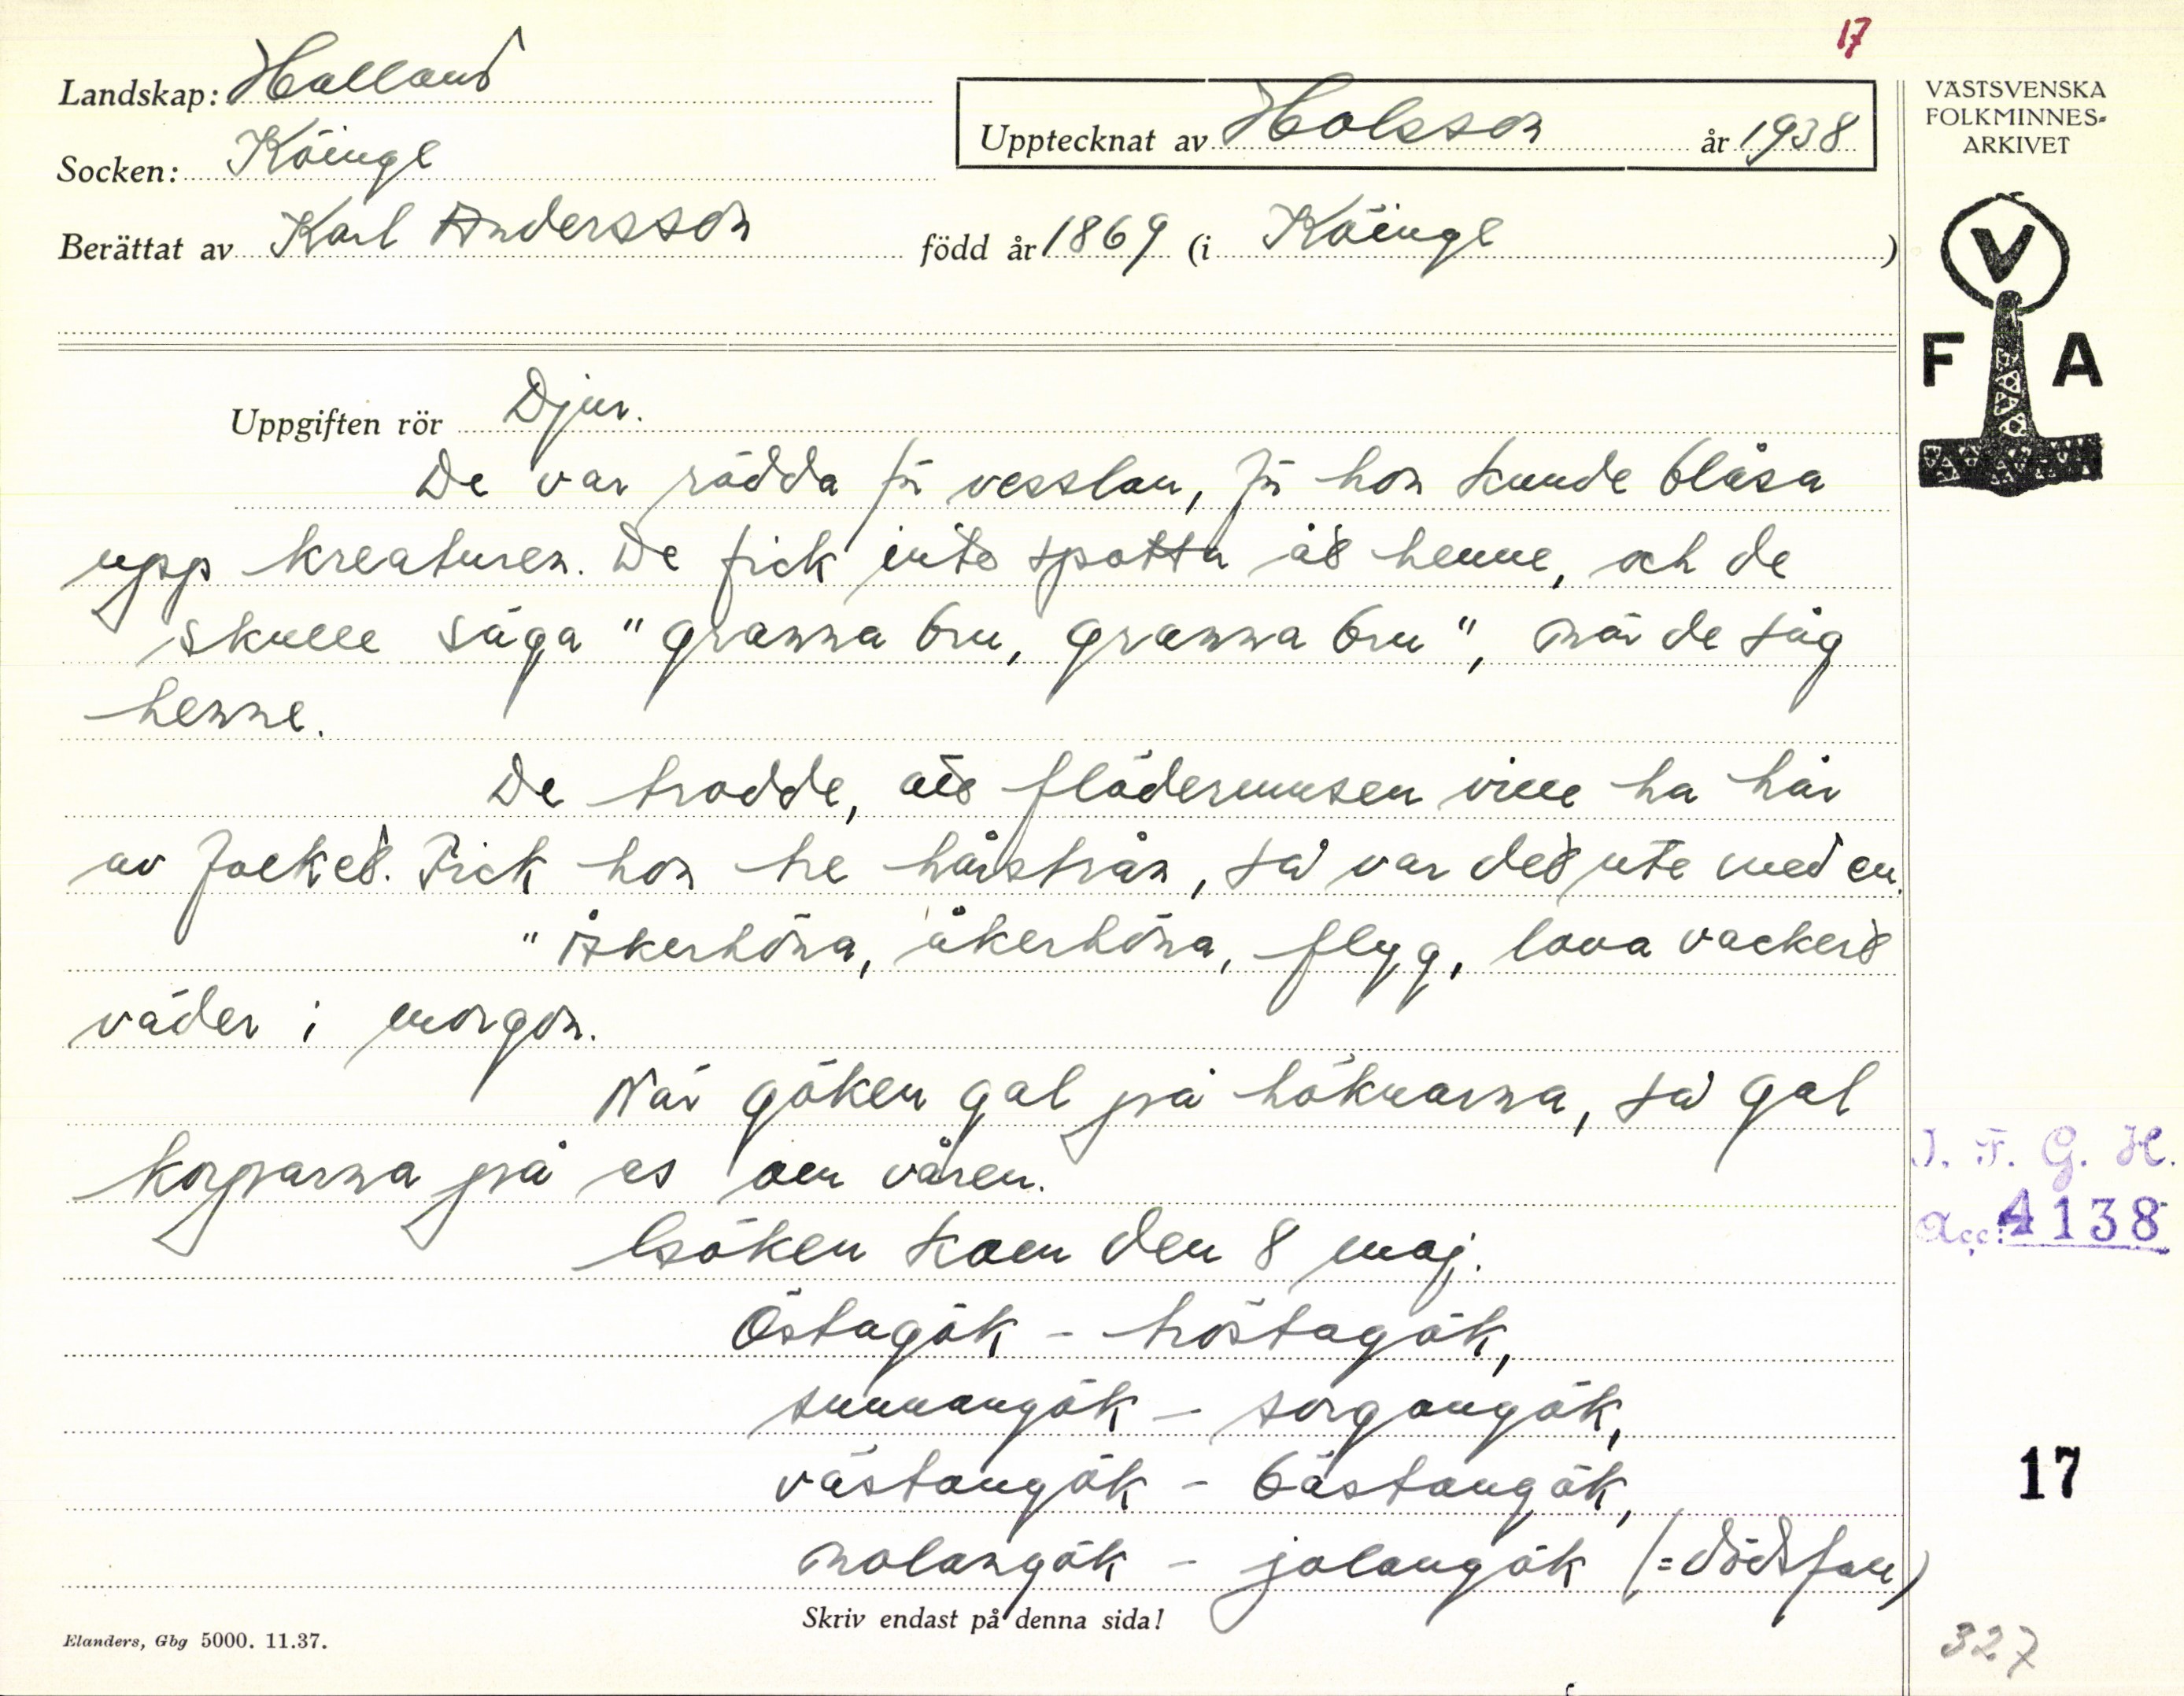 17
Landskap: Halland
Socken: Köinge
Upptecknat av Holsson år 1938
Berättat av Karl Andersson född år 1869 (i Köinge)
VÄSTSVENSKA
FOLKMINNES-
ARKIVET
V
F A
Uppgiften rör Djur.
De var rädda för vesslan, för hon kunde blåsa
upp kreaturen. De fick inte spotta åt henne, och de
skulle säga "granna bru, granna bru", när de såg
henne.
De trodde, att flädermusen ville ha hår
av folket. Fick hon tre hårstrån, så var det ute med en.
"Åkerhöna, åkerhöna, flyg, lova vackert
väder i morgon.
När göken gal på höknarna, så gal
korparna på as om våren.
Göken kom den 8 maj.
Östagök - tröstagök,
sunnangök - sorgangök,
västangök - bästangök,
nolangök - jolangök (=dödsfall)
I. F. G. H.
Acc. 4138
17
Skriv endast på denna sida!
Elanders, Gbg 5000. 11.37.
327